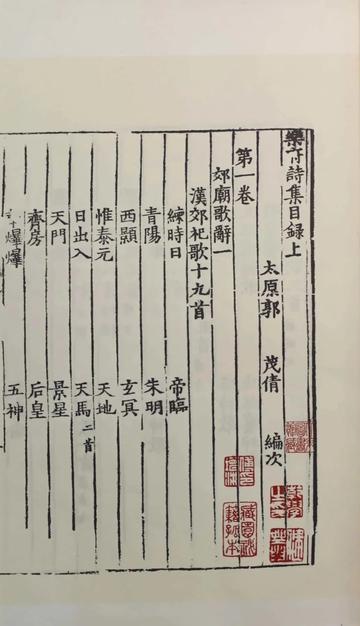 樂府詩集目錄上
太原郭 茂倩 編次
第一卷
郊廟歌辭一
漢郊祀歌十九首
練時日 帝臨
青陽 朱明
西顥 玄冥
惟泰元 天地
日出入 天馬二首
天門 景星
齊房 后皇
爗爗 五神